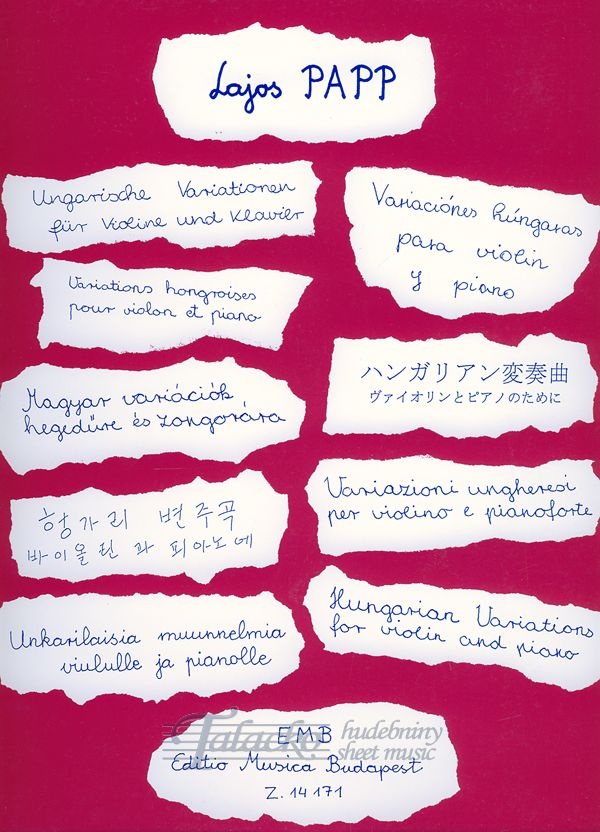 Lajos PAPP
Ungarische Variationen
für Violine und Klavier
Variaciónes húngaras
para violin
y piano
Variations hongroises
pour violon et piano
ハンガリアン変奏曲
ヴァイオリンとピアノのために
Magyar variációk
hegedűre és zongorára
Variazioni ungheresi
per violino e pianoforte
헝가리 변주곡
바이올린 과 피아노에
Hungarian Variations
for violin and piano
Unkarilaisia muunnelmia
viululle ja pianolle
EMB
Editio Musica Budapest
Z. 14 171
Talacko hudebniny
sheet music